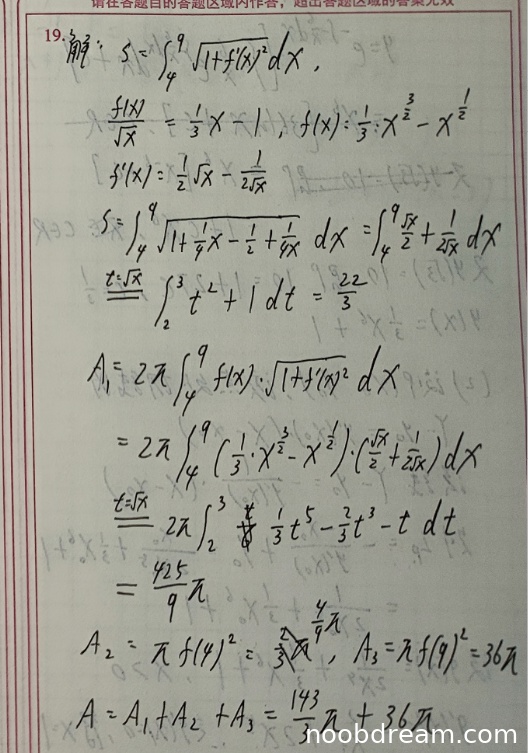 请在各题目的答题区域内作答，超出答题区域的答案无效
19. 解: S = ∫₄⁹ √(1+f'(x)²) dx,
f(x)/√x = 1/3 x - 1, f(x) = 1/3·x^(3/2) - x^(1/2)
f'(x) = 1/2 √x - 1/(2√x)
S = ∫₄⁹ √(1 + 1/4 x - 1/2 + 1/(4x)) dx = ∫₄⁹ √x/2 + 1/(2√x) dx
t=√x ∫₂³ t² + 1 dt = 22/3
A₁ = 2π ∫₄⁹ f(x)·√(1+f'(x)²) dx
= 2π ∫₄⁹ (1/3·x^(3/2) - x^(1/2))·(√x/2 + 1/(2√x)) dx
t=√x 2π ∫₂³ 1/3 t⁵ - 2/3 t³ - t dt
= 425/9 π
A₂ = π f(4)² = 4/9 π, A₃ = π f(9)² = 36π
A = A₁ + A₂ + A₃ = 143/3 π + 36π
noobdream.com